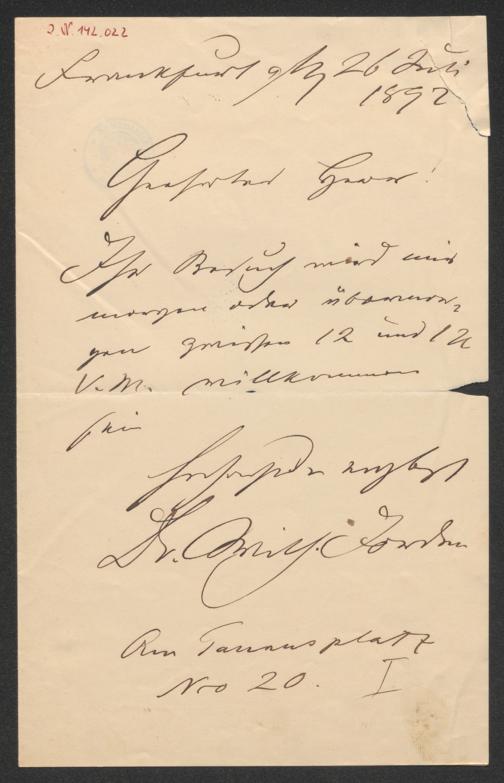 J.N. 142.022
Frankfurt a/M 26 Juli
1892
Geehrter Herr!
Ihr Besuch wird mir
morgen oder übermor-
gen zwischen 12 und 1 U
V.M. willkommen
sein
Hochachtend ergebenst
Dr. Wilh. Jordan
Am Taunusplatz
Nro 20. I